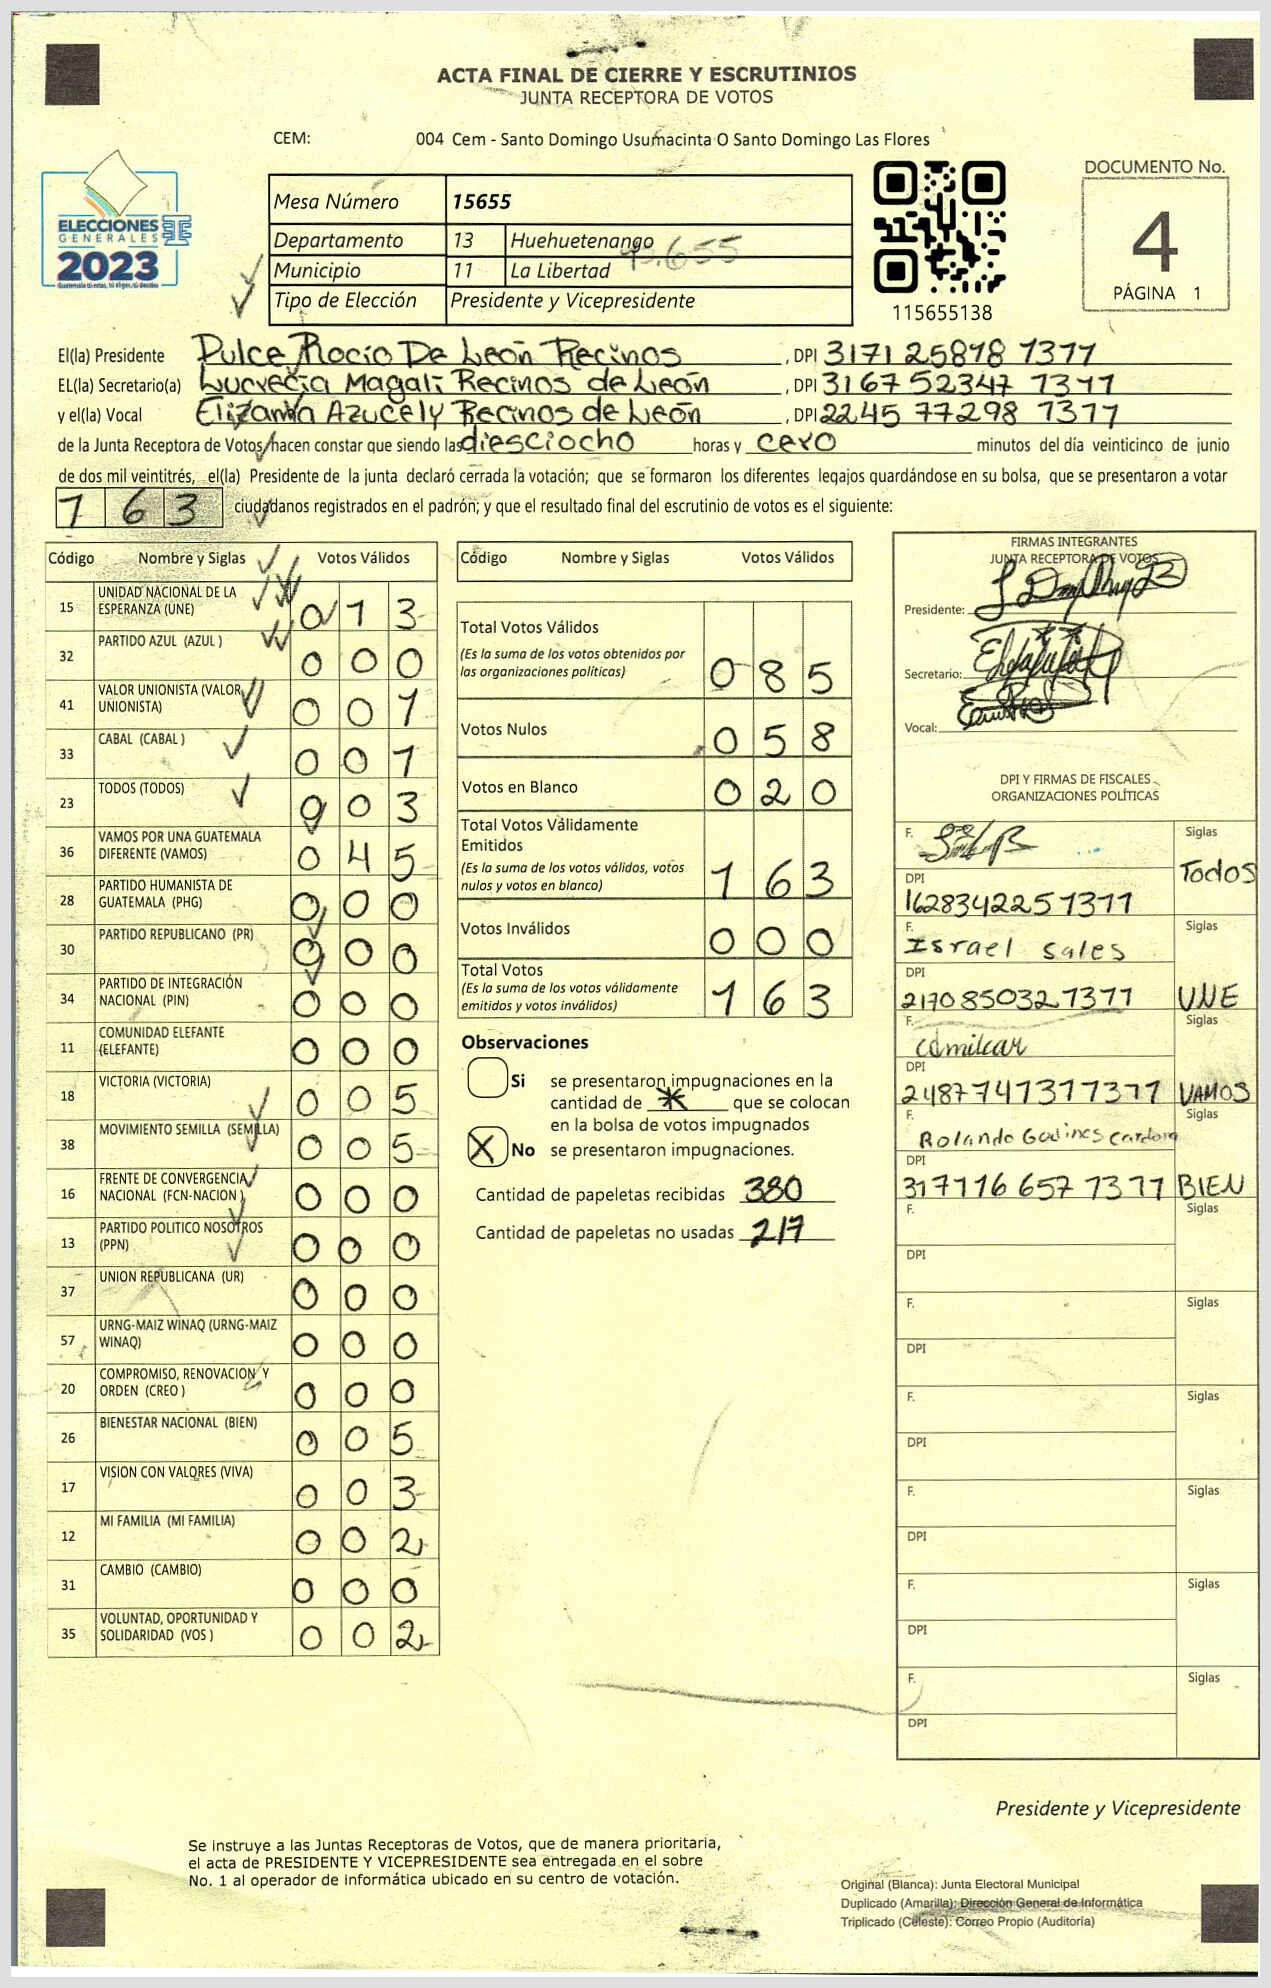 ACTA FINAL DE CIERRE Y ESCRUTINIOS
JUNTA RECEPTORA DE VOTOS
CEM: 004 Cem - Santo Domingo Usumacinta O Santo Domingo Las Flores
ELECCIONES
GENERALES
2023
Mesa Número 15655
Departamento 13 Huehuetenango
Municipio 11 La Libertad
Tipo de Elección Presidente y Vicepresidente
115655138
DOCUMENTO No.
4
PÁGINA 1
El(la) Presidente Dulce Rocio De León Recinos, DPI 3171 25898 1311
EL(la) Secretario(a) Lucrecia Magali Recinos de León, DPI 3167 52347 1311
y el(la) Vocal Azucely Recinos de León, DPI 2245 77298 1311
de la Junta Receptora de Votos, hacen constar que siendo las diesciocho horas y cero minutos del día veinticinco de junio
de dos mil veintitrés, el(la) Presidente de la junta declaró cerrada la votación; que se formaron los diferentes legajos guardándose en su bolsa, que se presentaron a votar
163 ciudadanos registrados en el padrón; y que el resultado final del escrutinio de votos es el siguiente:
Código Nombre y Siglas Votos Válidos
15 UNIDAD NACIONAL DE LA ESPERANZA (UNE) 0 1 3
32 PARTIDO AZUL (AZUL ) 0 0 0
41 VALOR UNIONISTA (VALOR UNIONISTA) 0 0 1
33 CABAL (CABAL ) 0 0 1
23 TODOS (TODOS) 0 0 3
36 VAMOS POR UNA GUATEMALA DIFERENTE (VAMOS) 0 4 5
28 PARTIDO HUMANISTA DE GUATEMALA (PHG) 0 0 0
30 PARTIDO REPUBLICANO (PR) 0 0 0
34 PARTIDO DE INTEGRACIÓN NACIONAL (PIN) 0 0 0
11 COMUNIDAD ELEFANTE (ELEFANTE) 0 0 0
18 VICTORIA (VICTORIA) 0 0 5
38 MOVIMIENTO SEMILLA (SEMILLA) 0 0 5
16 FRENTE DE CONVERGENCIA NACIONAL (FCN-NACION ) 0 0 0
13 PARTIDO POLITICO NOSOTROS (PPN) 0 0 0
37 UNION REPUBLICANA (UR) 0 0 0
57 URNG-MAIZ WINAQ (URNG-MAIZ WINAQ) 0 0 0
20 COMPROMISO, RENOVACION Y ORDEN (CREO ) 0 0 0
26 BIENESTAR NACIONAL (BIEN) 0 0 5
17 VISION CON VALORES (VIVA) 0 0 3
12 MI FAMILIA (MI FAMILIA) 0 0 2
31 CAMBIO (CAMBIO) 0 0 0
35 VOLUNTAD, OPORTUNIDAD Y SOLIDARIDAD (VOS ) 0 0 2
Código Nombre y Siglas Votos Válidos
Total Votos Válidos 0 8 5
(Es la suma de los votos obtenidos por
las organizaciones políticas)
Votos Nulos 0 5 8
Votos en Blanco 0 2 0
Total Votos Válidamente
Emitidos 1 6 3
(Es la suma de los votos válidos, votos
nulos y votos en blanco)
Votos Inválidos 0 0 0
Total Votos 1 6 3
(Es la suma de los votos válidamente
emitidos y votos inválidos)
Observaciones
Si se presentaron impugnaciones en la
cantidad de * que se colocan
en la bolsa de votos impugnados
X No se presentaron impugnaciones.
Cantidad de papeletas recibidas 380
Cantidad de papeletas no usadas 217
FIRMAS INTEGRANTES
JUNTA RECEPTORA DE VOTOS
Presidente:
Secretario:
Vocal:
DPI Y FIRMAS DE FISCALES
ORGANIZACIONES POLÍTICAS
F. Siglas
Todos
DPI
1628342251311
F. Israel Sales Siglas
DPI
2170850321311 UNE
F. Amilcar Siglas
DPI
2487741311311 VAMOS
F. Rolando Godines Cardona Siglas
DPI
317116 657 1311 BIEN
F. Siglas
DPI
F. Siglas
DPI
F. Siglas
DPI
F. Siglas
DPI
F. Siglas
DPI
F. Siglas
DPI
Presidente y Vicepresidente
Se instruye a las Juntas Receptoras de Votos, que de manera prioritaria,
el acta de PRESIDENTE Y VICEPRESIDENTE sea entregada en el sobre
No. 1 al operador de informática ubicado en su centro de votación.
Original (Blanca): Junta Electoral Municipal
Duplicado (Amarilla): Dirección General de Informática
Triplicado (Celeste): Correo Propio (Auditoría)